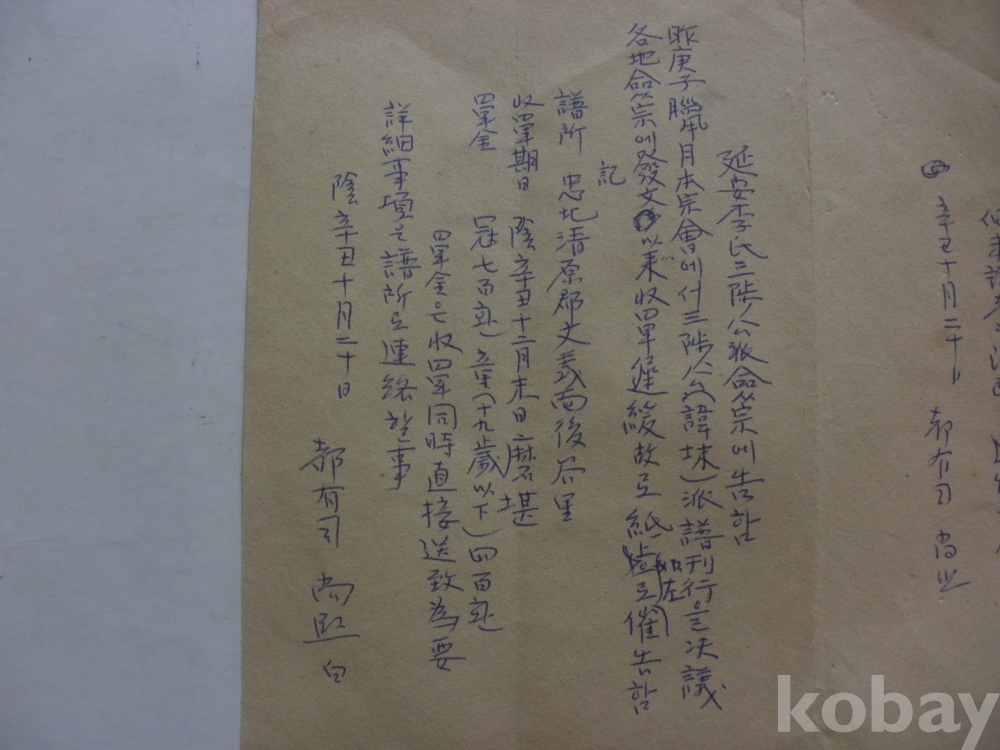 辛丑十月二十日 都有司 尚熙
延安李氏三陟公派僉宗에 告함
昨庚子臘月本宗會에서 三陟公(諱埭)派譜刊行을 决議
各地僉宗에 發文 以來 收單遲緩 故로 紙上로 如左 催告함
記
譜所 忠北清原郡文義面後谷里
收單期日 陰辛丑十二月末日 磨堪
單金 冠七百환 童(十九歲以下)四百환
單金은 收單同時直接送致為要
詳細事項은 譜所로 連絡할 事
陰辛丑十月二十日
都有司 尚熙 白
kobay